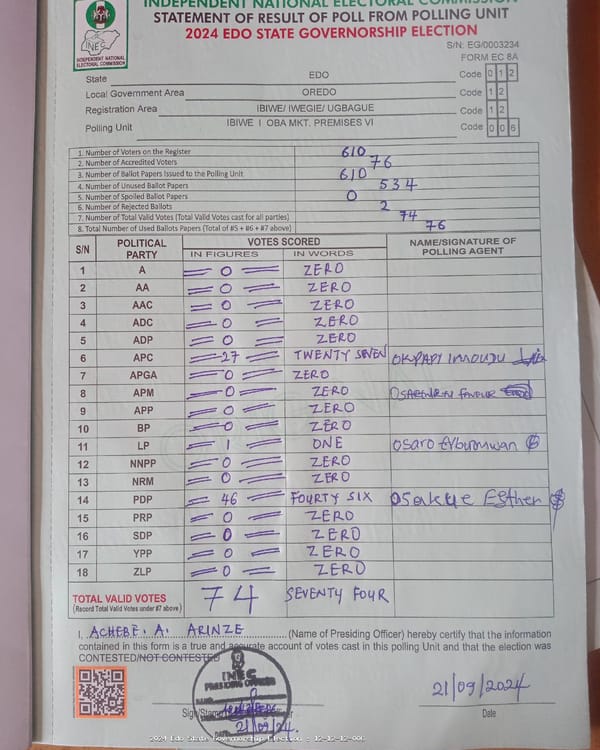 INDEPENDENT NATIONAL ELECTORAL COMMISSION
STATEMENT OF RESULT OF POLL FROM POLLING UNIT
2024 EDO STATE GOVERNORSHIP ELECTION
INEC
INDEPENDENT NATIONAL
ELECTORAL COMMISSION
S/N: EG/0003234
FORM EC 8A
State EDO Code 0 1 2
Local Government Area OREDO Code 1 2
Registration Area IBIWE/ IWEGIE/ UGBAGUE Code 1 2
Polling Unit IBIWE I OBA MKT. PREMISES VI Code 0 0 6
1. Number of Voters on the Register 610
2. Number of Accredited Voters 76
3. Number of Ballot Papers Issued to the Polling Unit 610
4. Number of Unused Ballot Papers 534
5. Number of Spoiled Ballot Papers 0
6. Number of Rejected Ballots 2
7. Number of Total Valid Votes (Total Valid Votes cast for all parties) 74
8. Total Number of Used Ballots Papers (Total of #5 + #6 + #7 above) 76
S/N POLITICAL PARTY VOTES SCORED NAME/SIGNATURE OF POLLING AGENT
IN FIGURES IN WORDS
1 A 0 ZERO
2 AA 0 ZERO
3 AAC 0 ZERO
4 ADC 0 ZERO
5 ADP 0 ZERO
6 APC 27 TWENTY SEVEN IMOUDU
7 APGA 0 ZERO
8 APM 0 ZERO FAVOUR
9 APP 0 ZERO
10 BP 0 ZERO
11 LP 1 ONE Osaro
12 NNPP 0 ZERO
13 NRM 0 ZERO
14 PDP 46 FOURTY SIX Osakue Esther
15 PRP 0 ZERO
16 SDP 0 ZERO
17 YPP 0 ZERO
18 ZLP 0 ZERO
TOTAL VALID VOTES 74 SEVENTY FOUR
(Record Total Valid Votes under #7 above)
I, ACHEBE. A. ARINZE (Name of Presiding Officer) hereby certify that the information
contained in this form is a true and accurate account of votes cast in this polling Unit and that the election was
CONTESTED/NOT CONTESTED
INEC
PRESIDING OFFICER
21/09/24
21/09/2024
Sign/Stamp
Date
2024 Edo State Governorship Election - 12-12-12-006